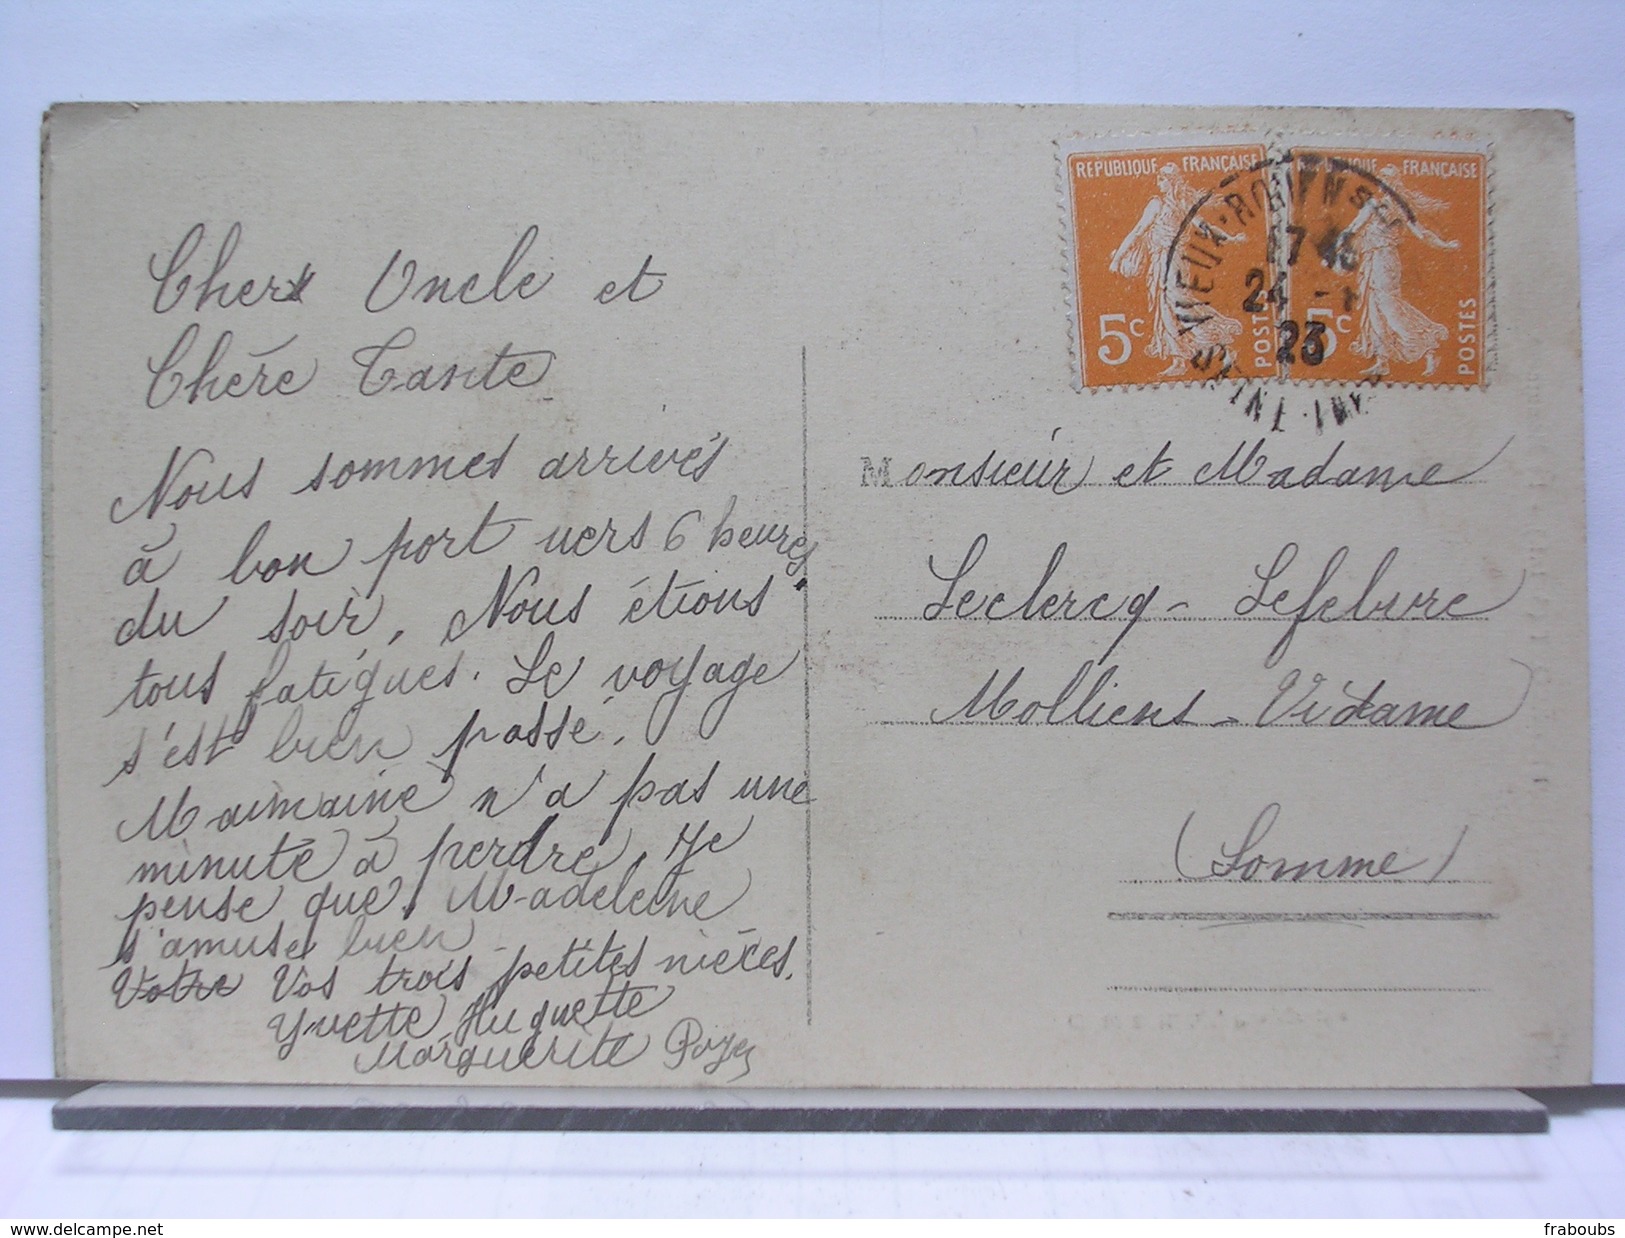 Cher Oncle et
Chère Tante
Nous sommes arrivés
à bon port vers 6 heures
du soir, Nous étions
tous fatigués. Le voyage
s'est bien passé.
Maimaine n'a pas une
minute à perdre, je
pense que Madeleine
s'amuse bien
Votre Vos trois petites nièces.
Yvette Huguette
Marguerite
REPUBLIQUE FRANÇAISE
5c
POSTES
REPUBLIQUE FRANÇAISE
5c
POSTES
VIEUX-ROUEN
17 45
24 - 1
23
SAINT
Monsieur et Madame
Leclercq - Lefebvre
Molliens - Vidame
(Somme)
delcampe.net
fraboubs